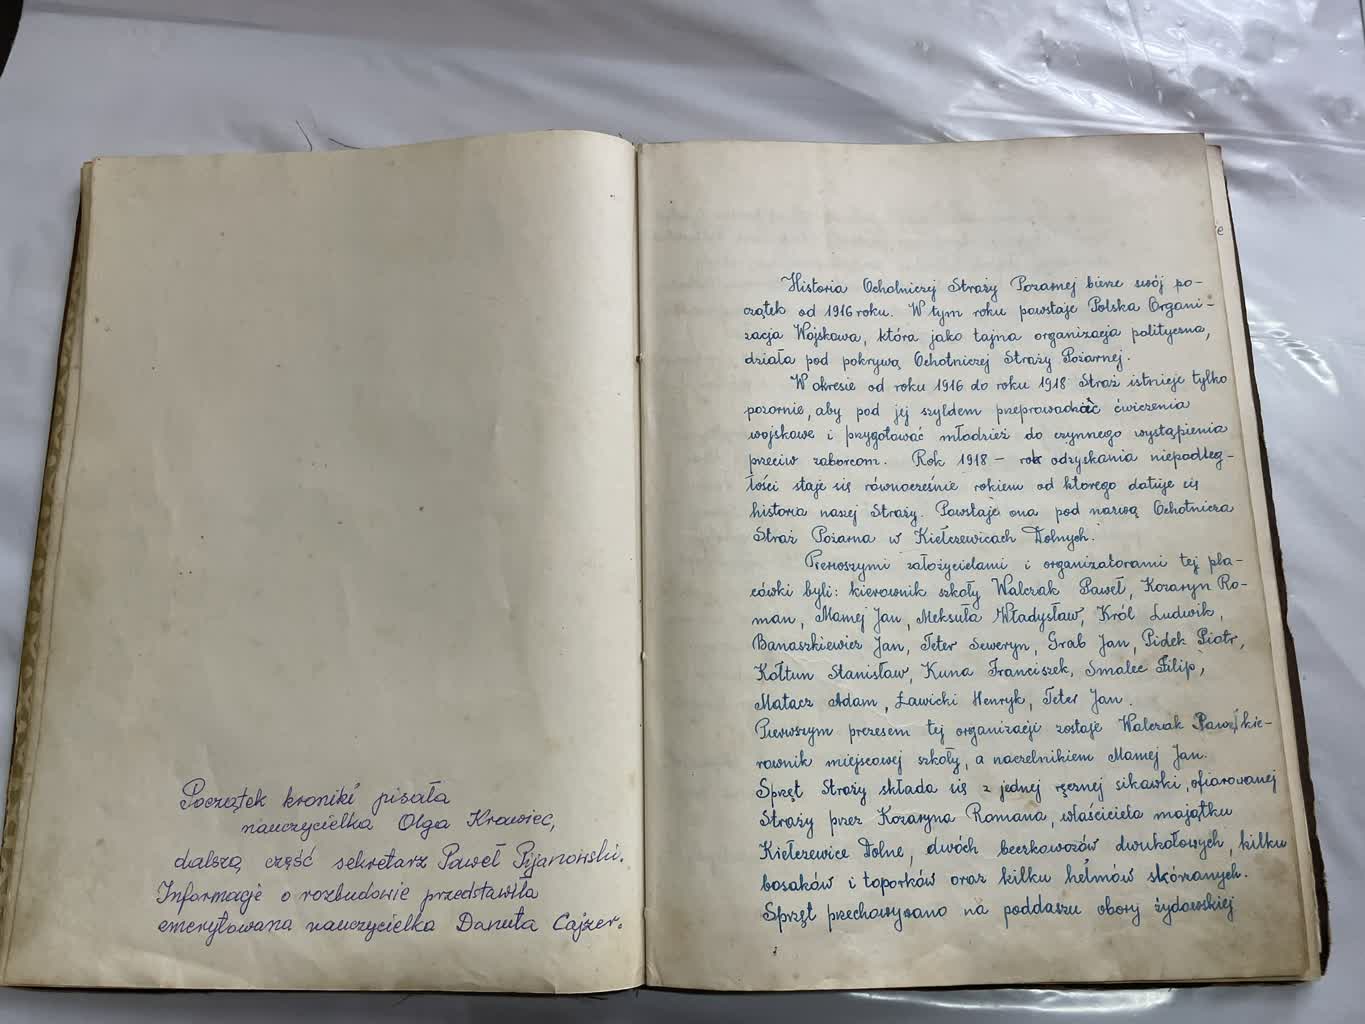 Początek kroniki pisała
nauczycielka Olga Krawiec,
dalszą część sekretarz Paweł Pijanowski.
Informacje o rozbudowie przedstawiła
emerytowana nauczycielka Danuta Cajzer.
Historia Ochotniczej Straży Pożarnej bierze swój po-
czątek od 1916 roku. W tym roku powstaje Polska Organi-
zacja Wojskowa, która jako tajna organizacja polityczna,
działa pod pokrywą Ochotniczej Straży Pożarnej.
W okresie od roku 1916 do roku 1918 Straż istnieje tylko
pozornie, aby pod jej szyldem przeprowadzać ćwiczenia
wojskowe i przygotować młodzież do czynnego wystąpienia
przeciw zaborcom. Rok 1918 – rok odzyskania niepodleg-
łości staje się równocześnie rokiem od którego datuje się
historia naszej Straży. Powstaje ona pod nazwą Ochotnicza
Straż Pożarna w Kiełczewicach Dolnych.
Pierwszymi założycielami i organizatorami tej pla-
cówki byli: kierownik szkoły Walczak Paweł, Kozaryn Ro-
man, Mamej Jan, Meksuła Władysław, Król Ludwik,
Banaszkiewicz Jan, Teter Seweryn, Grab Jan, Pidek Piotr,
Kołtun Stanisław, Kuna Franciszek, Smalec Filip,
Matacz Adam, Ławicki Henryk, Teter Jan.
Pierwszym prezesem tej organizacji zostaje Walczak Paweł kie-
rownik miejscowej szkoły, a naczelnikiem Mamej Jan.
Sprzęt Straży składa się z jednej ręcznej sikawki, ofiarowanej
Straży przez Kozaryna Romana, właściciela majątku
Kiełczewice Dolne, dwóch beczkowozów dwukołowych, kilku
bosaków i toporków oraz kilku hełmów skórzanych.
Sprzęt przechowywano na poddaszu obory żydowskiej